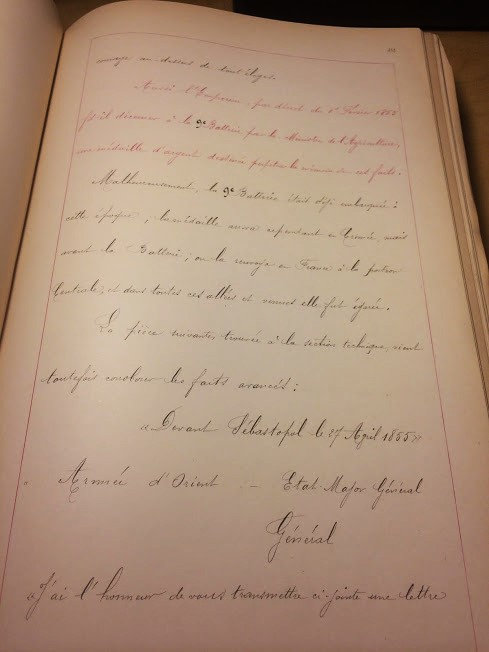 courage au-dessus de tout éloges.
Aussi l'Empereur, par décret du 1er Février 1855
fit-il décerner à la 9e Batterie par le Ministre de l'Agriculture,
une médaille d'argent destinée perpétuer la mémoire de ces faits.
Malheureusement, la 9e Batterie était déjà embarquée à
cette époque; la médaille arriva cependant en Crimée, mais
avant la Batterie; on la renvoya en France à la portion
Centrale, et dans toutes ces allées et venues elle fut égarée.
La pièce suivante, trouvée à la section technique, vient
toutefois corroborer les faits avancés:
« Devant Sébastopol le 27 April 1855 »
« Armée d'Orient – Etat-Major Général
Général
« J'ai l'honneur de vous transmettre ci-jointe une lettre